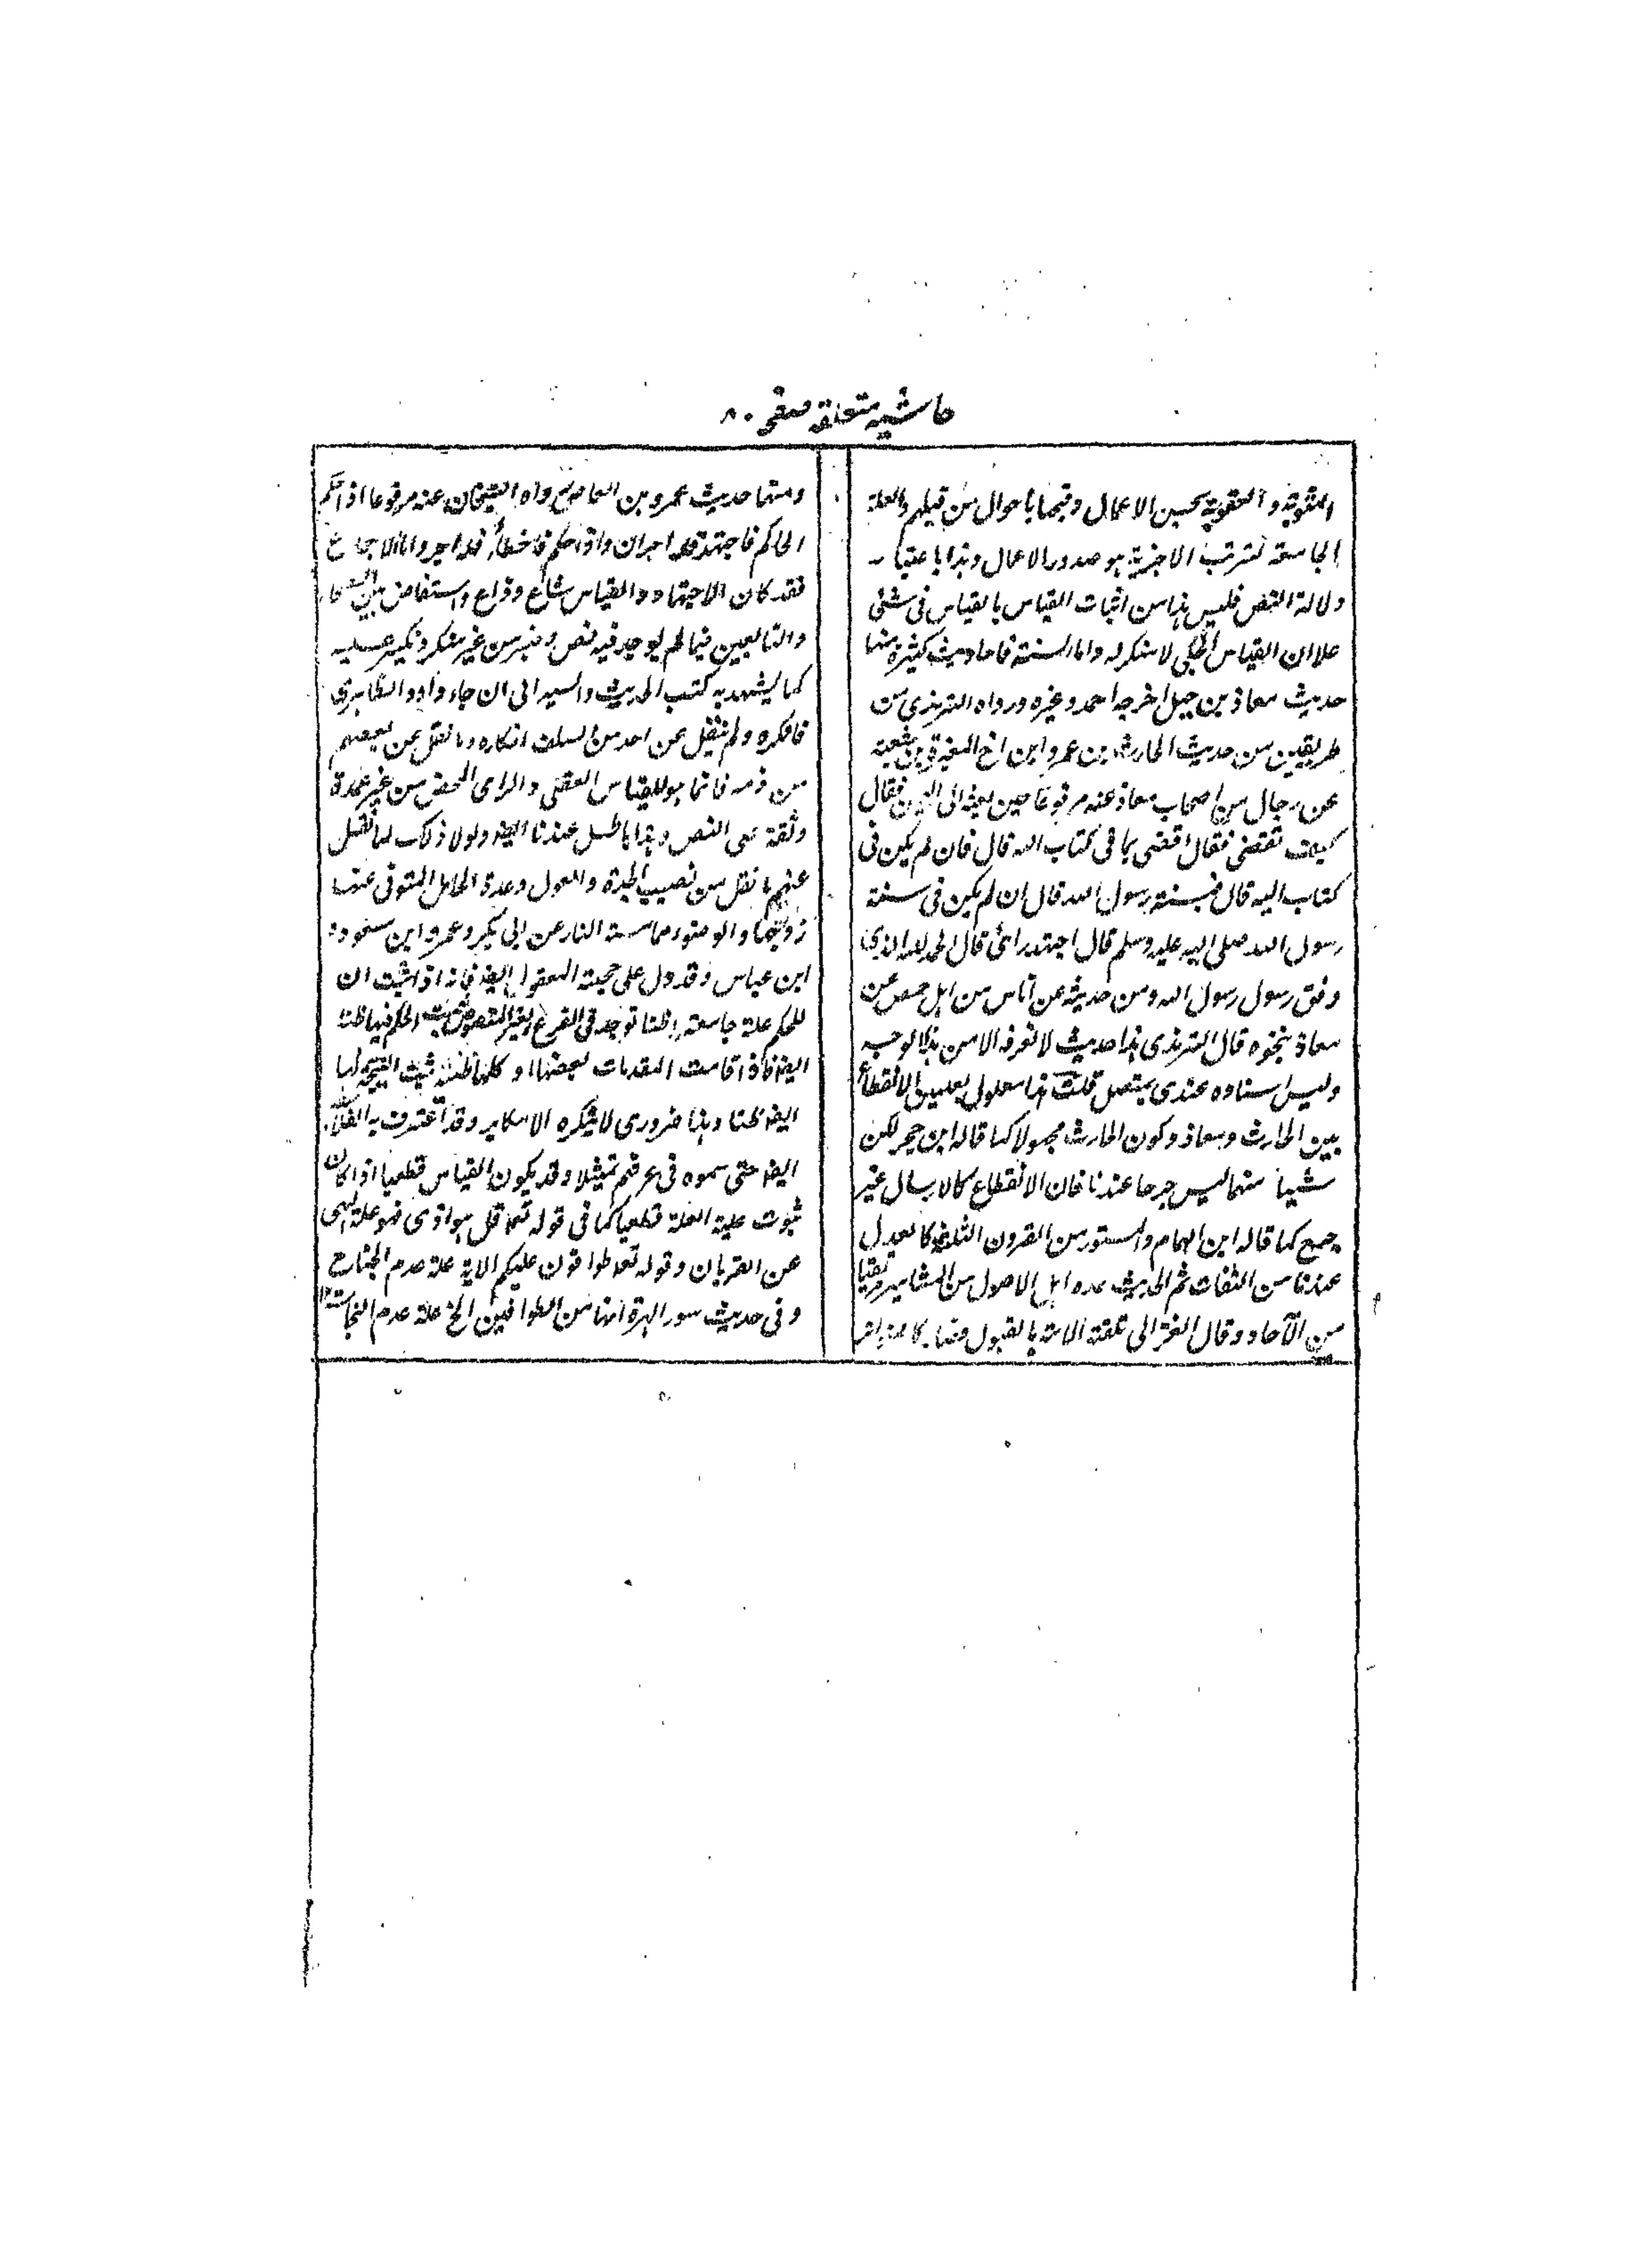 حاشيه متعلقه صفحه ٨٠
المثوبة والعقوبة بحسن الاعمال وقبحها باحوال من قبلهم والعلة
الجامعة لترتب الاجزية هو صدور الاعمال وهذا باعتبار
دلالة النص فليس هذا من اثبات القياس بالقياس فى شئى
علا ان القياس الجلى لا منكر له واما السنة فاحاديث كثيرة منها
حديث معاذ بن جبل اخرجه احمد وغيره ورواه الترمذى من
طريقين من حديث الحارث بن عمرو ابن اخ المغيرة بن شعبة
عن رجال من اصحاب معاذ عنه مرفوعا حين بعثه الى اليمن فقال
كيف تقضى فقال اقضى بما فى كتاب الله قال فان لم يكن فى
كتاب الله قال فبسنة رسول الله قال ان لم يكن فى سنة
رسول الله صلى الله عليه وسلم قال اجتهد رائى قال الحمد لله الذى
وفق رسول رسول الله ومن حديثه عن أناس من اهل حمص عن
معاذ بنحوه قال الترمذى هذا حديث لا نعرفه الا من هذا الوجه
وليس اسناده عندى بمتصل قلت هذا معلول بعلتين الانقطاع
بين الحارث ومعاذ وكون الحارث مجهولا كما قاله ابن حجر لكن
شيئا منهما ليس جرحا عندنا فان الانقطاع كالارسال غير
جرح كما قاله ابن الهمام والمستور من القرون الثلثة كالعدل
عندنا من الثقات ثم الحديث عده اهل الاصول من المشاهير
من الآحاد وقال الغزالى تلقته الامة بالقبول
ومنها حديث عمرو بن العاص رواه الشيخان عنه مرفوعا اذا حكم
الحاكم فاجتهد فله اجران واذا حكم فاخطأ فله اجر واما الاجماع
فقد كان الاجتهاد والقياس شاع وذاع واستفاض بين الصحابة
والتابعين فيما لم يوجد فيه نص وخبر من غير منكر ونكير عليه
كما يشهد به كتب الحديث والسير الى ان جاء داود الظاهرى
فانكره ولم ينقل عن احد من السلف انكاره وما نقل عن بعضهم
من ذمه فانما هو للقياس العقلى والراى المحض من غير عمدة
وثقة على النص وهذا باطل عندنا ايضا ولولا ذلك لما نقل
عنهم ما نقل من نصيب الجدة والعول وعدة الحامل المتوفى عنها
زوجها والوضوء مما مسته النار عن ابى بكر وعمر وابن مسعود و
ابن عباس وقد دل على حجيته المعقول ايضا فانه اذا ثبت ان
للحكم علة جامعة ظنا توجد فى الفرع الغير المنصوص ثبت الحكم فيها ظنا
ايضا فاذا قامت المقدمات بعضها او كلها ظنية ثبت النتيجة لها
ايضا ظنا وهذا ضرورى لا ينكره الا مكابر وقد اعترف به
ايضا حتى سموه فى عرفهم تمثيلا وقد يكون القياس قطعيا اذا كان
ثبوت علية العلة قطعيا كما فى قوله تعا قل هو اذى فهو علة النهى
عن القربان وقوله تعا طوافون عليكم الاية علة عدم الجناح
وفى حديث سور الهرة انها من الطوافين الخ علة عدم النجاسة